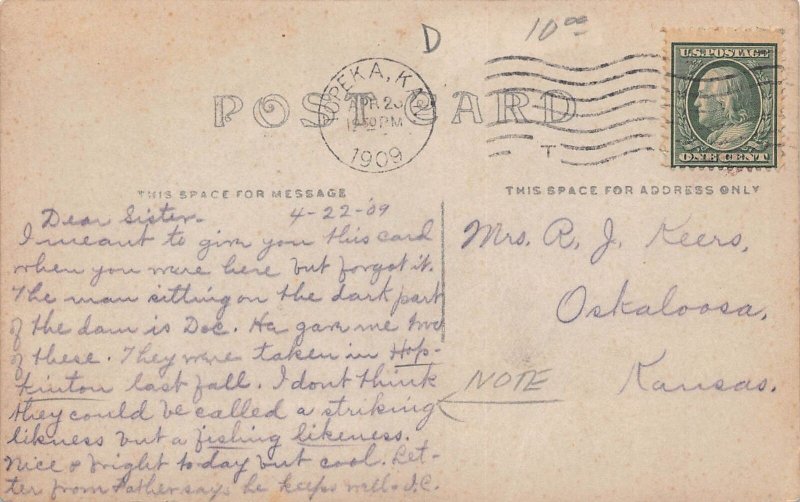 D
10.00
TOPEKA, KAN.
APR 23
12-30 PM
1909
T
U.S. POSTAGE
ONE CENT
POST CARD
THIS SPACE FOR MESSAGE
THIS SPACE FOR ADDRESS ONLY
Dear Sister. 4-22-09
I meant to give you this card
when you were here but forgot it.
The man sitting on the dark part
of the dam is Doc. He gave me two
of these. They were taken in Hop-
kinton last fall. I dont think
they could be called a striking
likness but a fishing likeness.
Nice & bright to day but cool. Let-
ter from Father says he keeps well - J.C.
NOTE
Mrs. R. J. Keers,
Oskaloosa,
Kansas.